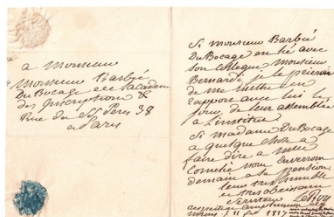 a Monsieur
Monsieur Barbié
Du Bocage de l'académie
des Inscriptions &
Rue du Sts Pères 38
a Paris
Si monsieur Barbié
Du Bocage en lié avec
son collègue Monsieur
Bernardi je le prierais
de me mettre en
rapport avec lui le
jour de leur assemblée
a l'institut
Si madame Du Bocage
a quelque chose a
faire dire a
nous
demain a la pension
leur très humble
et très obéissant
Serviteur
1817